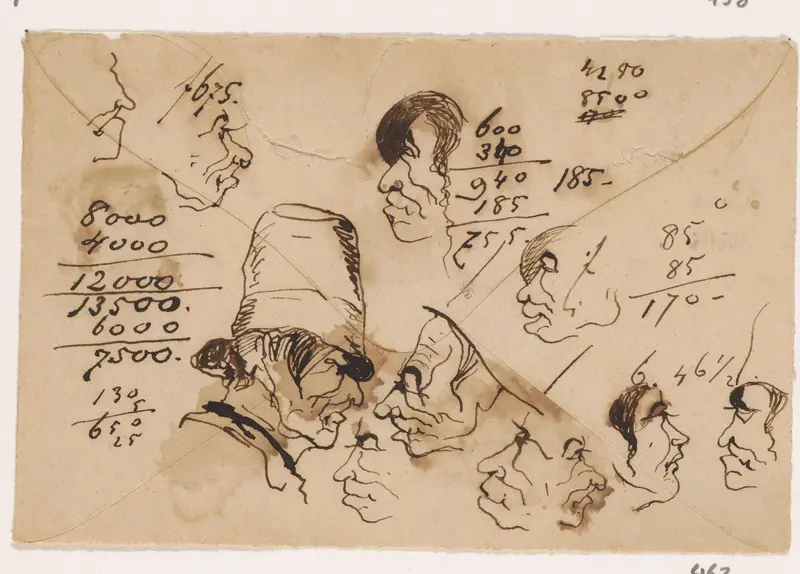 7675.
4280
8500
600
340
940 185-
185
755.
8000
4000
12000
13500.
6000
7500.
130
5
650
25
85
85
170-
6. 46½